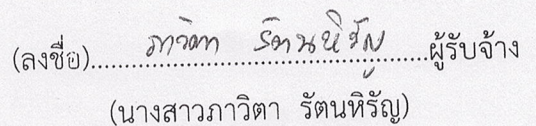 (ลงชื่อ)..........ภาวิตา รัตนหิรัญ..........ผู้รับจ้าง
(นางสาวภาวิตา รัตนหิรัญ)